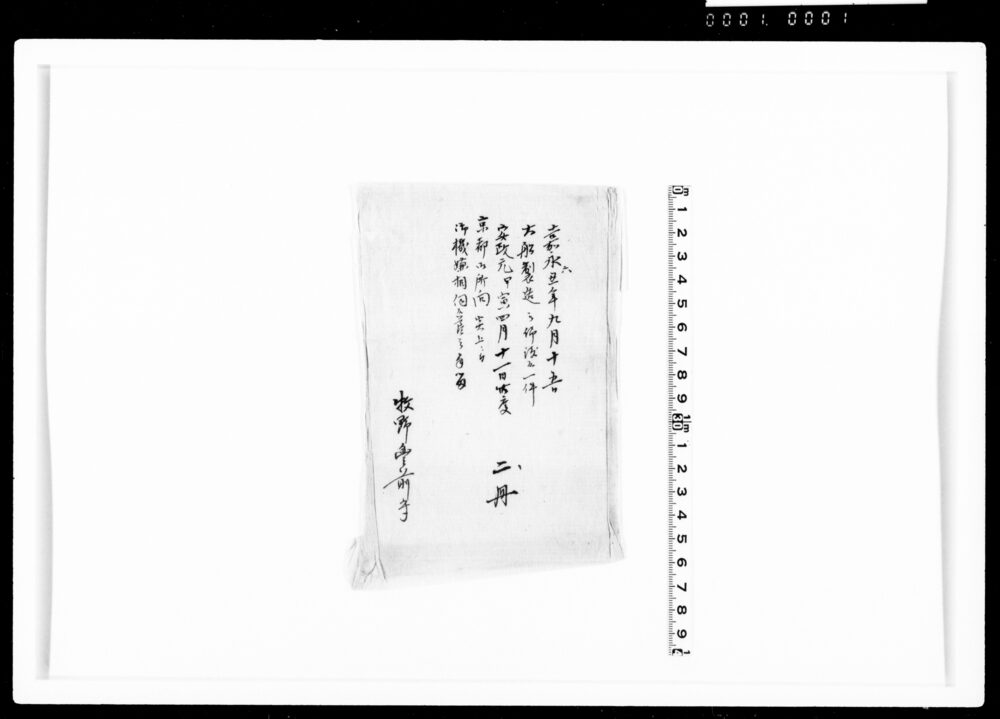 0001. 0001
嘉永六丑年九月十五日
大船製造之御沙汰一件
安政元甲寅四月十一日此度
京都御所向炎上ニ付
御機嫌相伺
牧野豊前守
二、丹
0 m 1 2 3 4 5 6 7 8 9 10 1 2 3 4 5 6 7 8 9